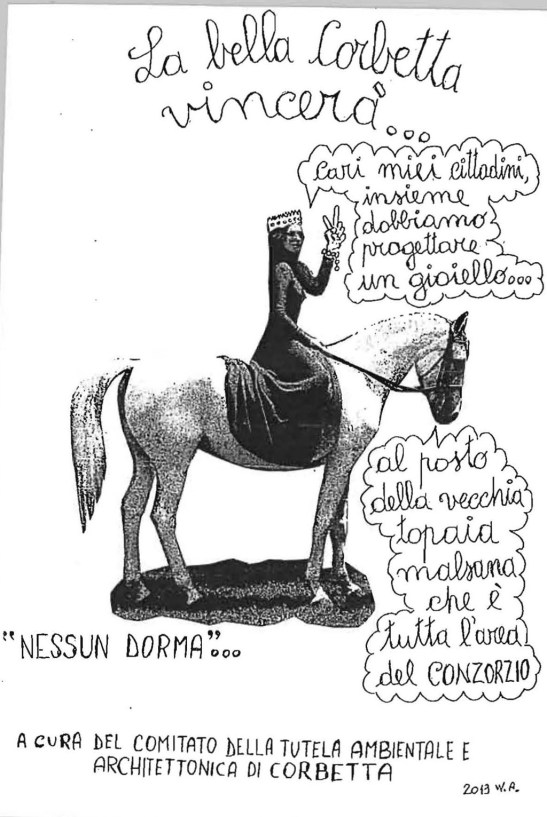 La bella Corbetta
vincerà...
cari miei cittadini,
insieme
dobbiamo
progettare
un gioiello...
al posto
della vecchia
topaia
malsana
che è
tutta l'area
del CONZORZIO
"NESSUN DORMA"...
A CURA DEL COMITATO DELLA TUTELA AMBIENTALE E
ARCHITETTONICA DI CORBETTA
2013 W.A.